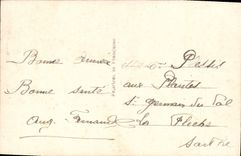 Bonne année
Bonne santé
Aug. Fernand
Plessis
aux Plantes
St Germain du Val
La Flèche
Sarthe